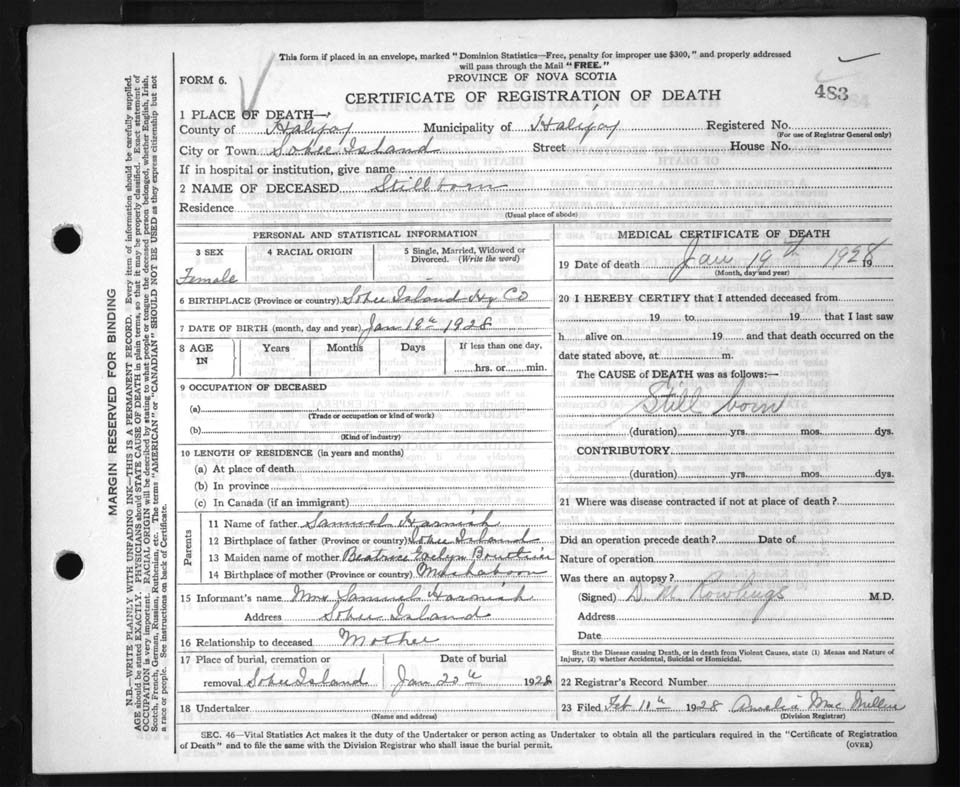 This form if placed in an envelope, marked "Dominion Statistics—Free, penalty for improper use $300," and properly addressed
will pass through the Mail "FREE."
FORM 6.
PROVINCE OF NOVA SCOTIA
CERTIFICATE OF REGISTRATION OF DEATH
483
1 PLACE OF DEATH—
County of Halifax Municipality of Halifax Registered No.
(For use of Registrar General only)
City or Town Sober Island Street House No.
If in hospital or institution, give name
2 NAME OF DECEASED Stillborn
Residence
(Usual place of abode)
PERSONAL AND STATISTICAL INFORMATION
3 SEX 4 RACIAL ORIGIN 5 Single, Married, Widowed or
Divorced. (Write the word)
Female
6 BIRTHPLACE (Province or country) Sober Island Hx Co
7 DATE OF BIRTH (month, day and year) Jan 19th 1928
8 AGE IN Years Months Days If less than one day,
hrs. or min.
9 OCCUPATION OF DECEASED
(a)
(Trade or occupation or kind of work)
(b)
(Kind of industry)
10 LENGTH OF RESIDENCE (in years and months)
(a) At place of death
(b) In province
(c) In Canada (if an immigrant)
Parents
11 Name of father Samuel Harnish
12 Birthplace of father (Province or country) Sober Island
13 Maiden name of mother Beatrice Evelyn Boutilier
14 Birthplace of mother (Province or country)
15 Informant's name Mrs Samuel Harnish
Address Sober Island
16 Relationship to deceased Mother
17 Place of burial, cremation or Date of burial
removal Sober Island Jan 20th 1928
18 Undertaker
(Name and address)
MEDICAL CERTIFICATE OF DEATH
19 Date of death Jan 19th 1928 19
(Month, day and year)
20 I HEREBY CERTIFY that I attended deceased from
19 to 19 that I last saw
h alive on 19 and that death occurred on the
date stated above, at m.
The CAUSE of DEATH was as follows:—
Still born
(duration) yrs. mos. dys.
CONTRIBUTORY
(duration) yrs. mos. dys.
21 Where was disease contracted if not at place of death?
Did an operation precede death? Date of
Nature of operation
Was there an autopsy?
(Signed) D. M. Rowlings M.D.
Address
Date
State the Disease causing Death, or in death from Violent Causes, state (1) Means and Nature of
Injury, (2) whether Accidental, Suicidal or Homicidal.
22 Registrar's Record Number
23 Filed Feb 11th 1928 Amelia MacMillan
(Division Registrar)
SEC. 46—Vital Statistics Act makes it the duty of the Undertaker or person acting as Undertaker to obtain all the particulars required in the "Certificate of Registration
of Death" and to file the same with the Division Registrar who shall issue the burial permit. (OVER)
MARGIN RESERVED FOR BINDING
N.B.—WRITE PLAINLY WITH UNFADING INK—THIS IS A PERMANENT RECORD. Every item of information should be carefully supplied.
AGE should be stated EXACTLY. PHYSICIANS should STATE CAUSE OF DEATH in plain terms, so that it may be properly classified. Exact statement of
OCCUPATION is very important. RACIAL ORIGIN will be described by stating to what people or tongue the deceased person belonged, whether English, Irish,
Scotch, French, German, Russian, Ruthenian, etc. The terms "AMERICAN" or "CANADIAN" SHOULD NOT BE USED as they express citizenship but not
a race or people. See instructions on back of Certificate.